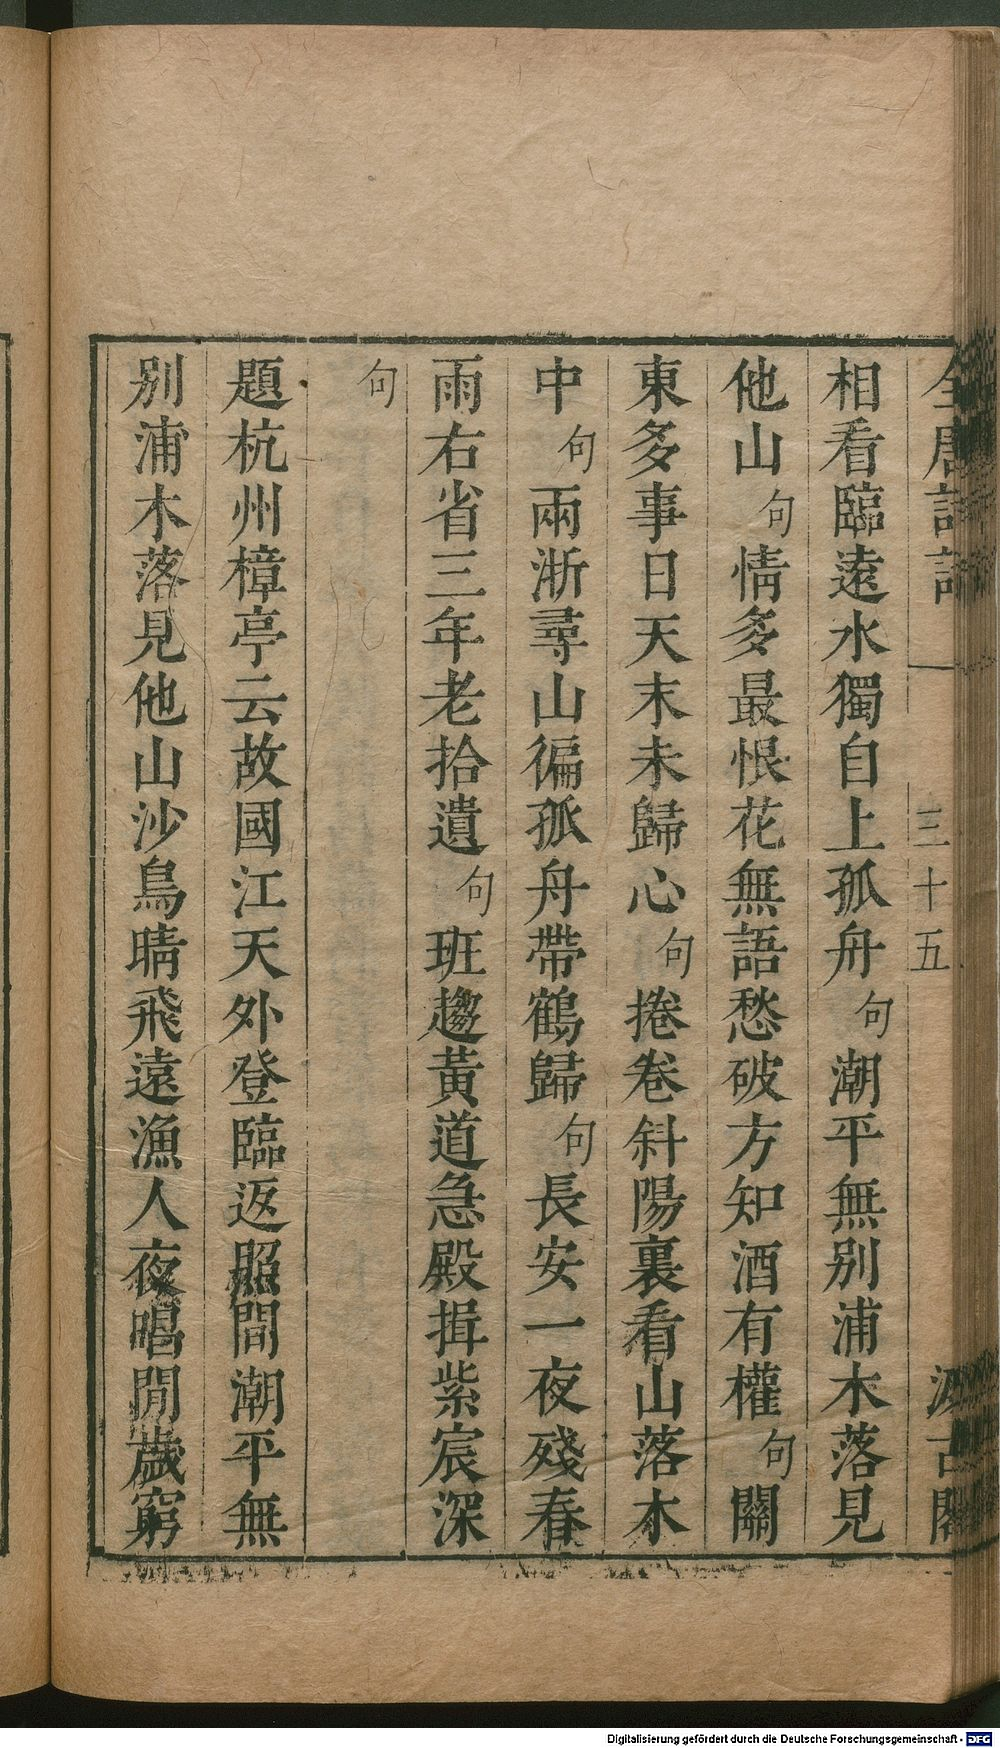 相看臨遠水獨自上孤舟句潮平無別浦木落見
他山句情多最恨花無語愁破方知酒有權句關
東多事日天末未歸心句捲卷斜陽裏看山落木
中句兩浙尋山徧孤舟帶鶴歸句長安一夜殘春
雨右省三年老拾遺句班趨黃道急殿揖紫宸深
句
題杭州樟亭云故國江天外登臨返照間潮平無
別浦木落見他山沙鳥晴飛遠漁人夜唱閒歲窮
全唐詩話
三十五
汲古閣
Digitalisierung gefördert durch die Deutsche Forschungsgemeinschaft - DFG